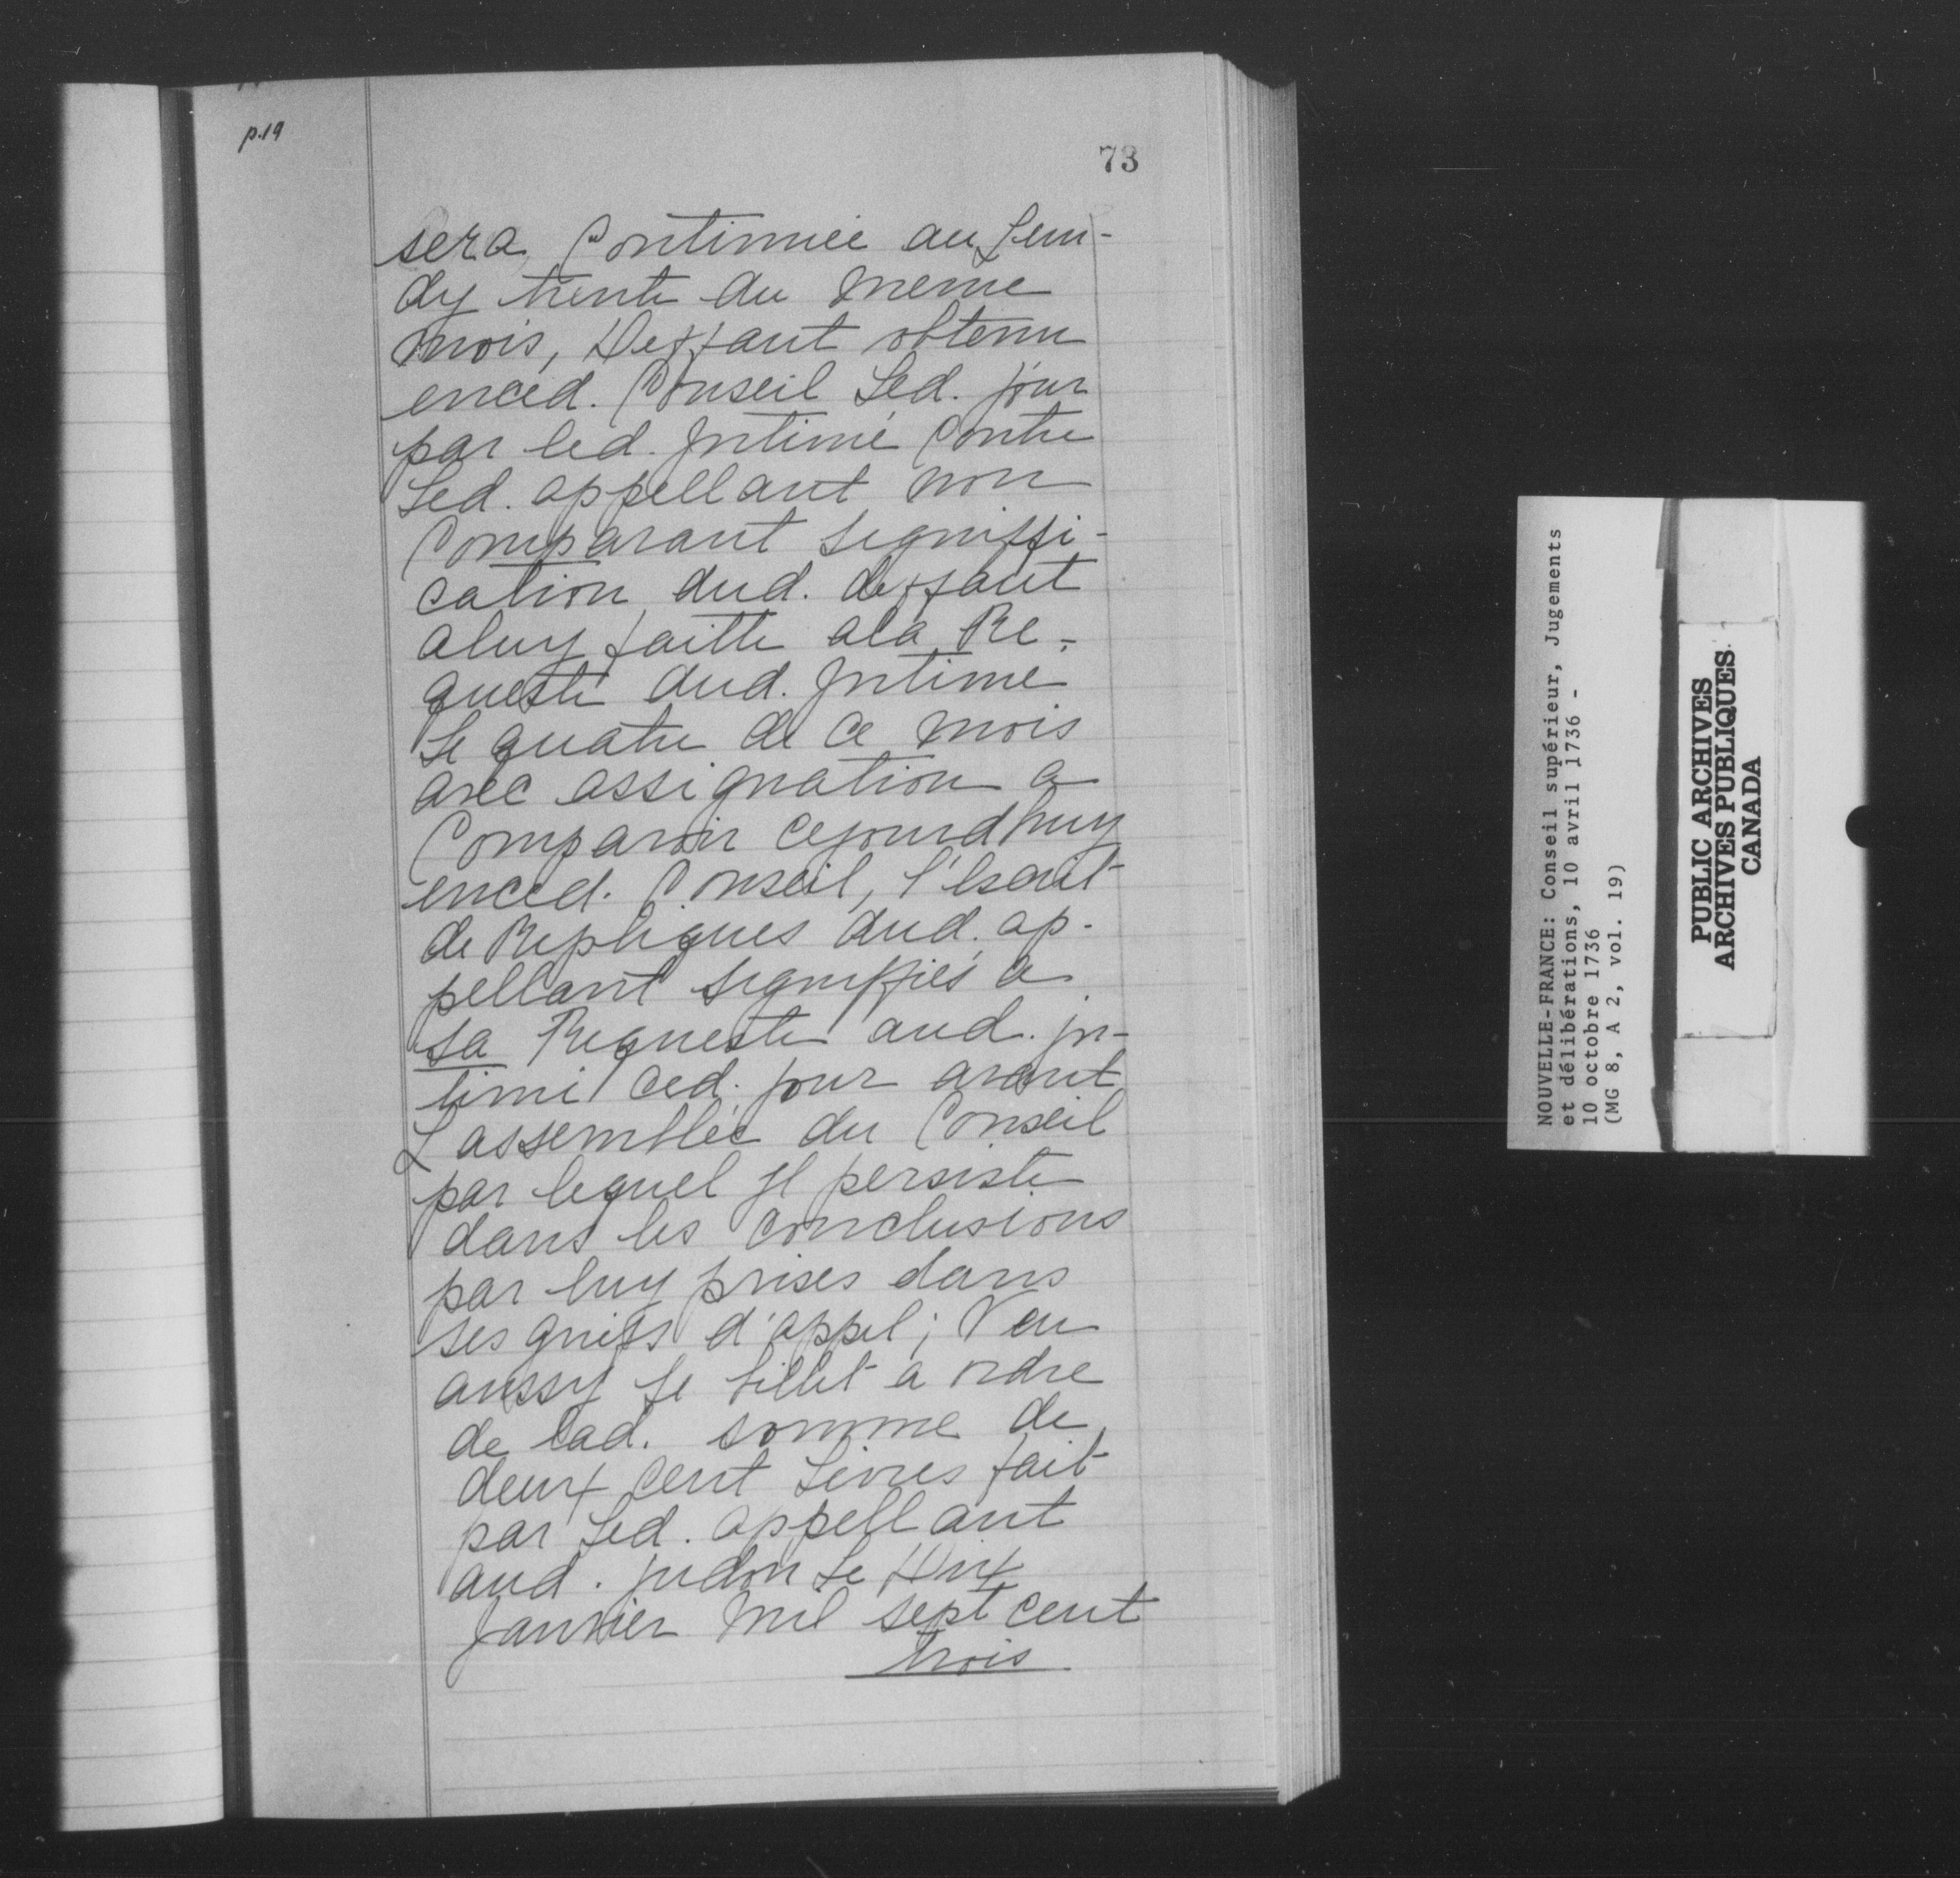 p.19
73
sera Continuée au Lun-
dy trente du meme
mois, Deffaut obtenu
enced. Conseil Led. jour
par led. Intimé Contre
Led. appellant non
Comparant signiffi-
cation dud. deffaut
aluy faitte ala Re-
queste dud. Intime
Le quatre de ce mois
avec assignation a
Comparoir cejourdhuy
enced. Conseil, l'Escrit
de Repliques dud. ap-
pellant signiffiés a
sa Requeste aud. In-
timé ced. jour avant
L'assemblée du Conseil
par lequel Il persiste
dans les Conclusions
par luy prises dans
ses griefs d'appel; Veu
aussy Le billet a ordre
de lad. somme de
deux cent Livres fait
par Led. appellant
aud. Le Dix
Janvier Mil sept cent
trois
NOUVELLE-FRANCE: Conseil supérieur, Jugements
et délibérations, 10 avril 1736 -
10 octobre 1736
(MG 8, A 2, vol. 19)
PUBLIC ARCHIVES
ARCHIVES PUBLIQUES
CANADA